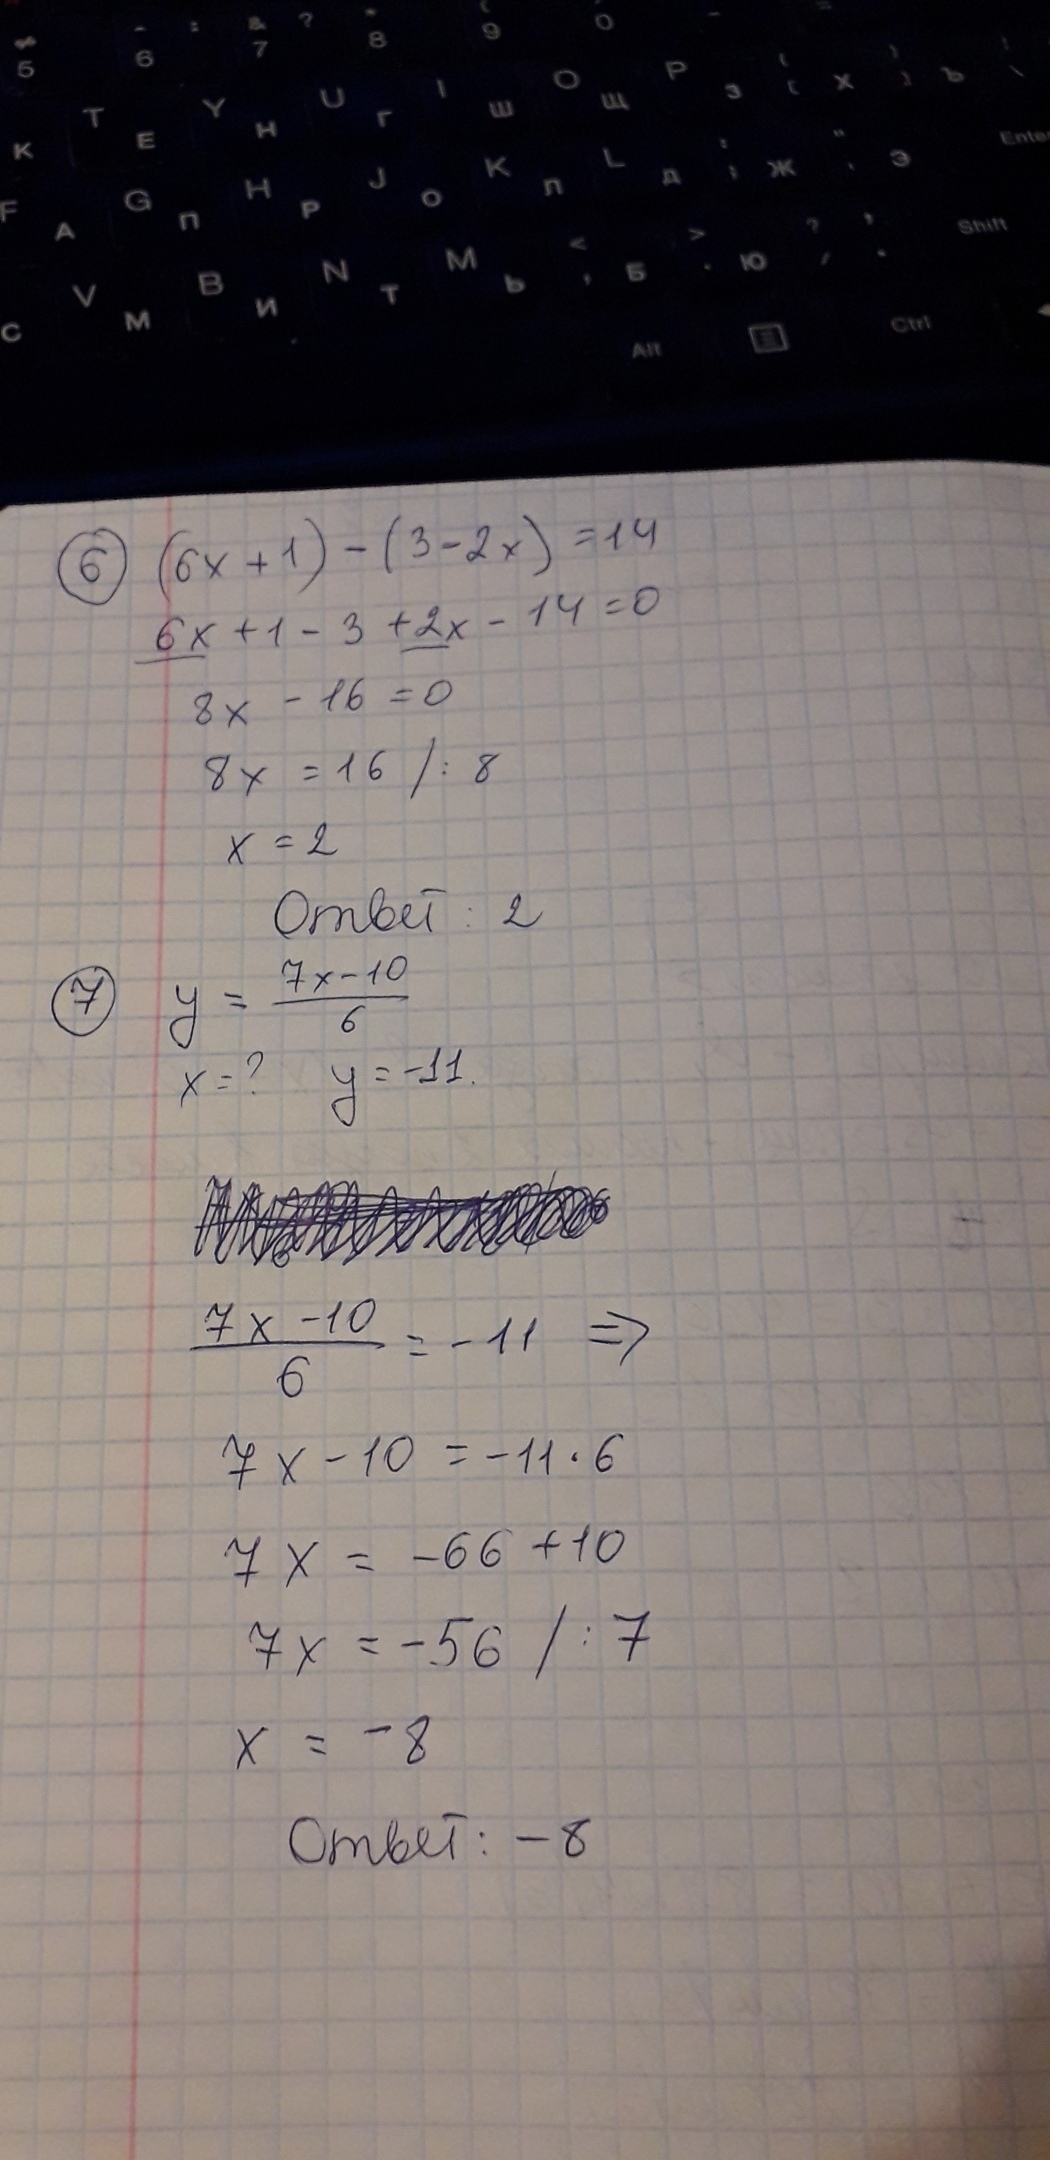 5 6 : & 7 ? 8 9 0 - =
K T E Y H U Г I Ш O Щ P З { [ Х } ] Ъ \
F A G П H Р J О K Л L Д : ; Ж " ' Э Enter
C V М B И N Т M Ь < , Б > . Ю ? / , . Shift
Alt Ctrl
6 (6x+1)-(3-2x)=14
6x+1-3+2x-14=0
8x-16=0
8x=16 /:8
x=2
Ответ: 2
7 y = \frac{7x-10}{6}
x=? y=-11.
\frac{7x-10}{6} = -11 =>
7x-10=-11·6
7x=-66+10
7x=-56 /:7
x=-8
Ответ: -8